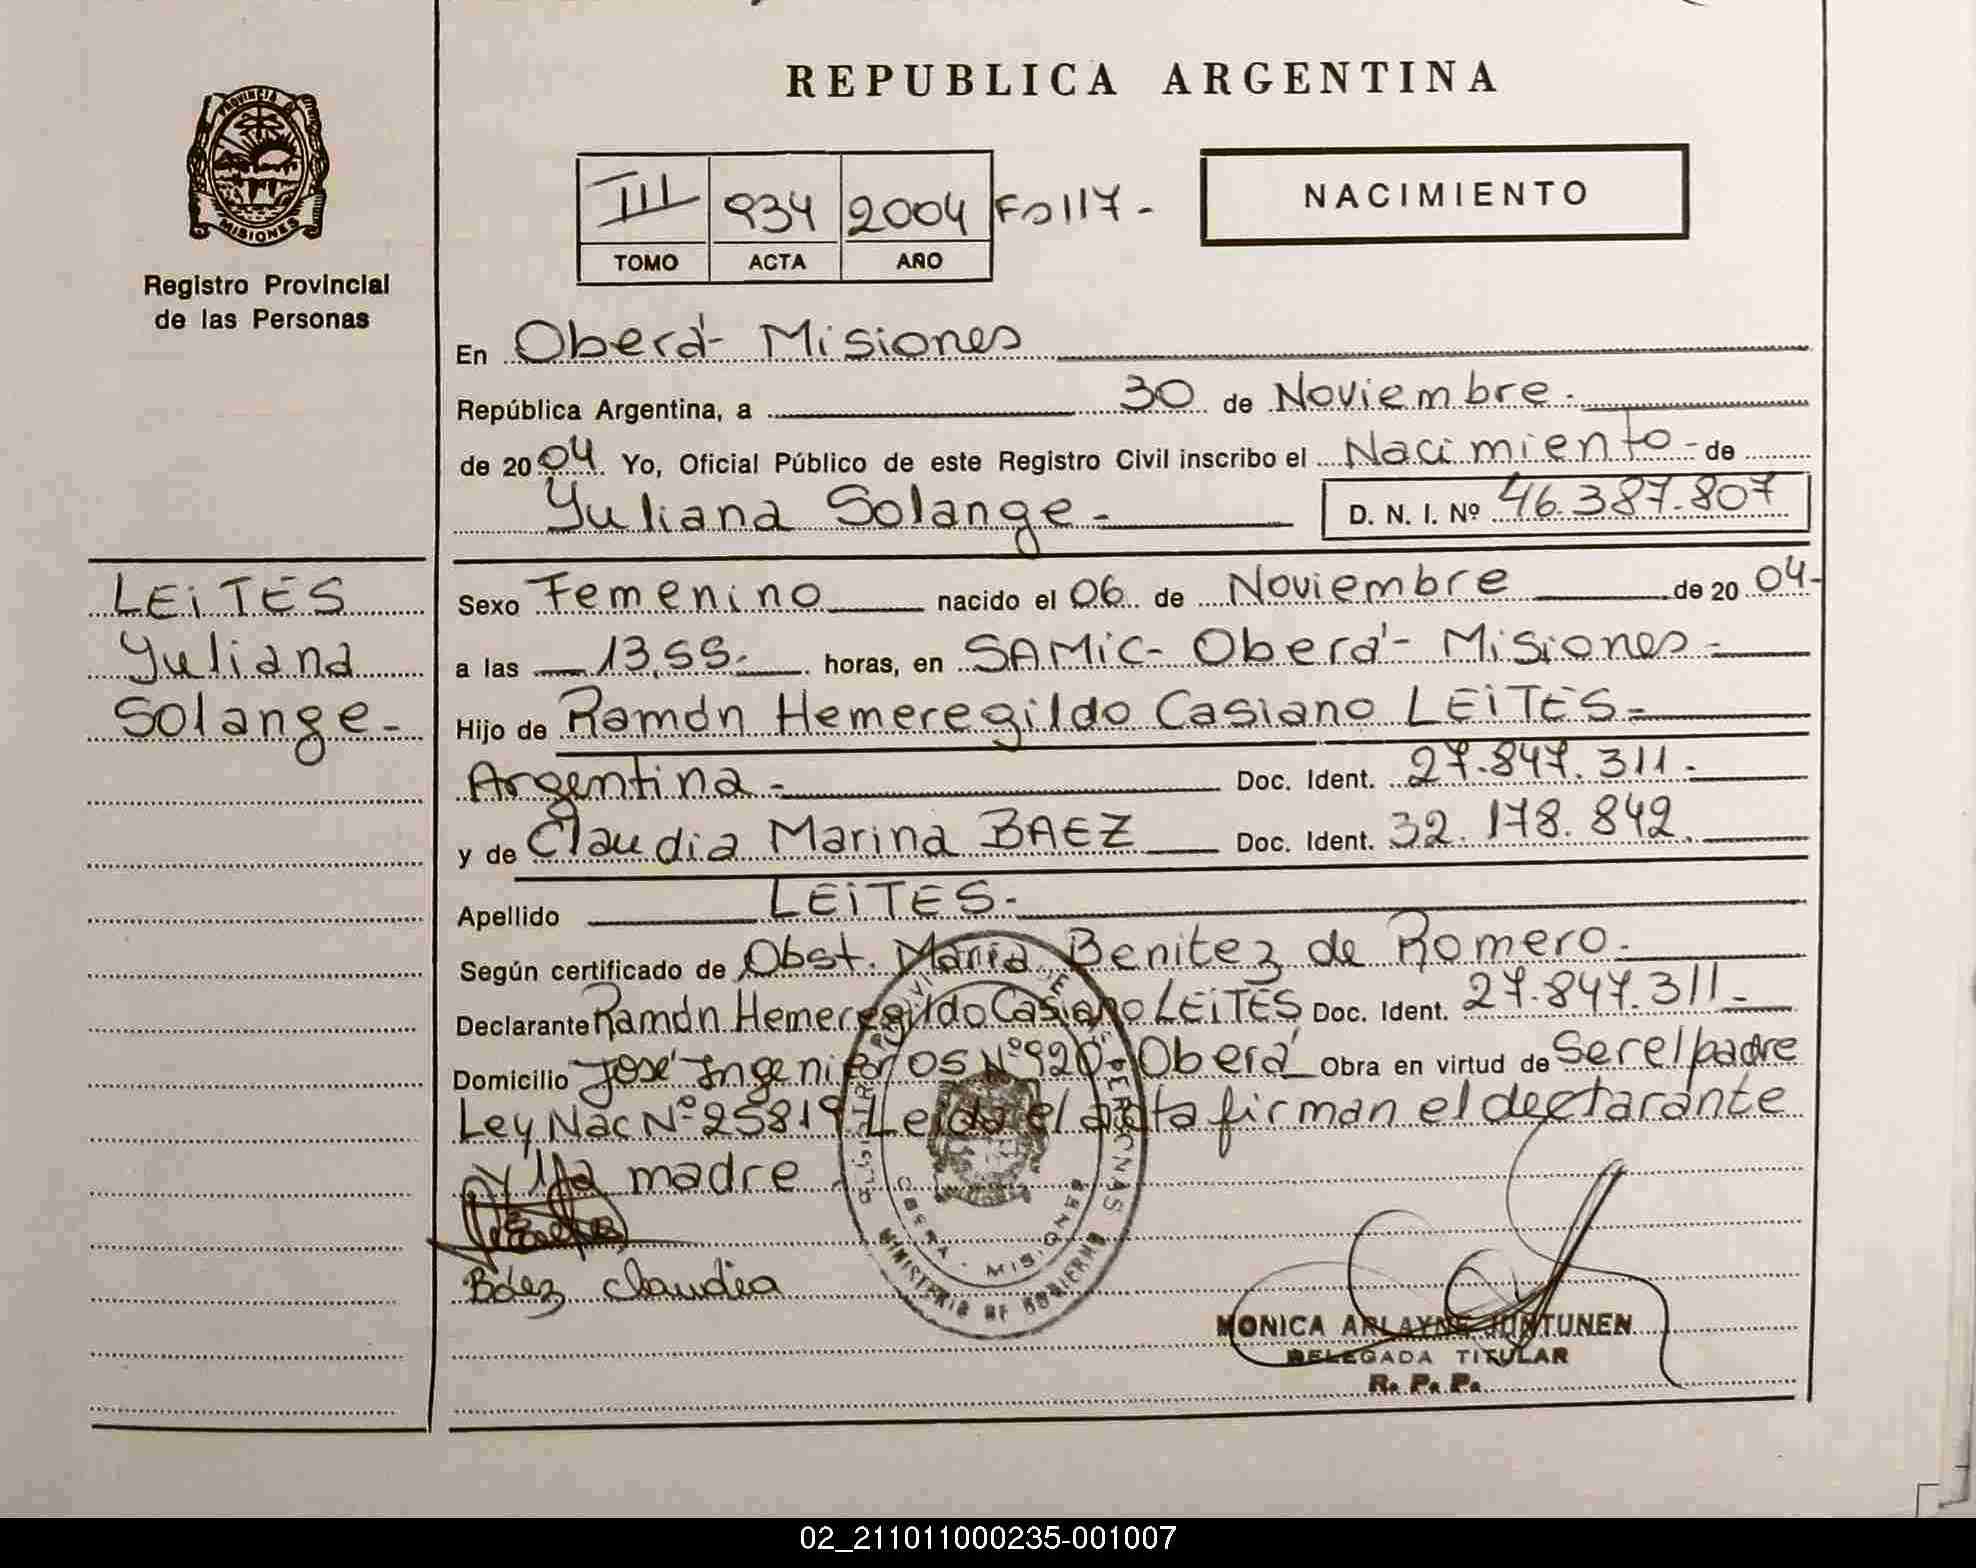 REPUBLICA ARGENTINA
PROVINCIA DE
MISIONES
Registro Provincial
de las Personas
III 934 2004 Fo 117-
TOMO ACTA AÑO
NACIMIENTO
En Oberá- Misiones
República Argentina, a 30 de Noviembre.
de 2004 Yo, Oficial Público de este Registro Civil inscribo el Nacimiento - de
Yuliana Solange - D. N. I. Nº 46.387.807
LEiTES
Yuliana
Solange-
Sexo Femenino nacido el 06 de Noviembre de 20 04-
a las 13,55- horas, en SAMiC- Oberá- Misiones-
Hijo de Ramón Hemeregildo Casiano LEiTES-
Argentina - Doc. Ident. 27.847.311-
y de Claudia Marina BAEZ Doc. Ident. 32.178.842.
Apellido LEiTES-
Según certificado de Obst. María Benitez de Romero-
Declarante Ramón Hemeregildo Casiano LEiTES Doc. Ident. 27.847.311-
Domicilio José Ingenieros Nº 920- Oberá Obra en virtud de Ser el padre
Ley Nac Nº 25819 Leida el acta firman el declarante
y la madre
Báez Claudia
OBERA - MISIONES
MINISTERIO DE GOBIERNO
MONICA ARLAYNE JUNTUNEN
DELEGADA TITULAR
R. P. P.
02_211011000235-001007